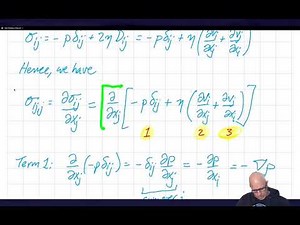 σij = -pδij + 2ηDij = -pδij + η(∂vi/∂xj + ∂vj/∂xi)
Hence, we have
σij,j = ∂σij/∂xj = ∂/∂xj [-pδij + η(∂vi/∂xj + ∂vj/∂xi)]
1 2 3
Term 1: ∂/∂xj (-pδij) = -δij ∂p/∂xj = -∂p/∂xi = -∇p